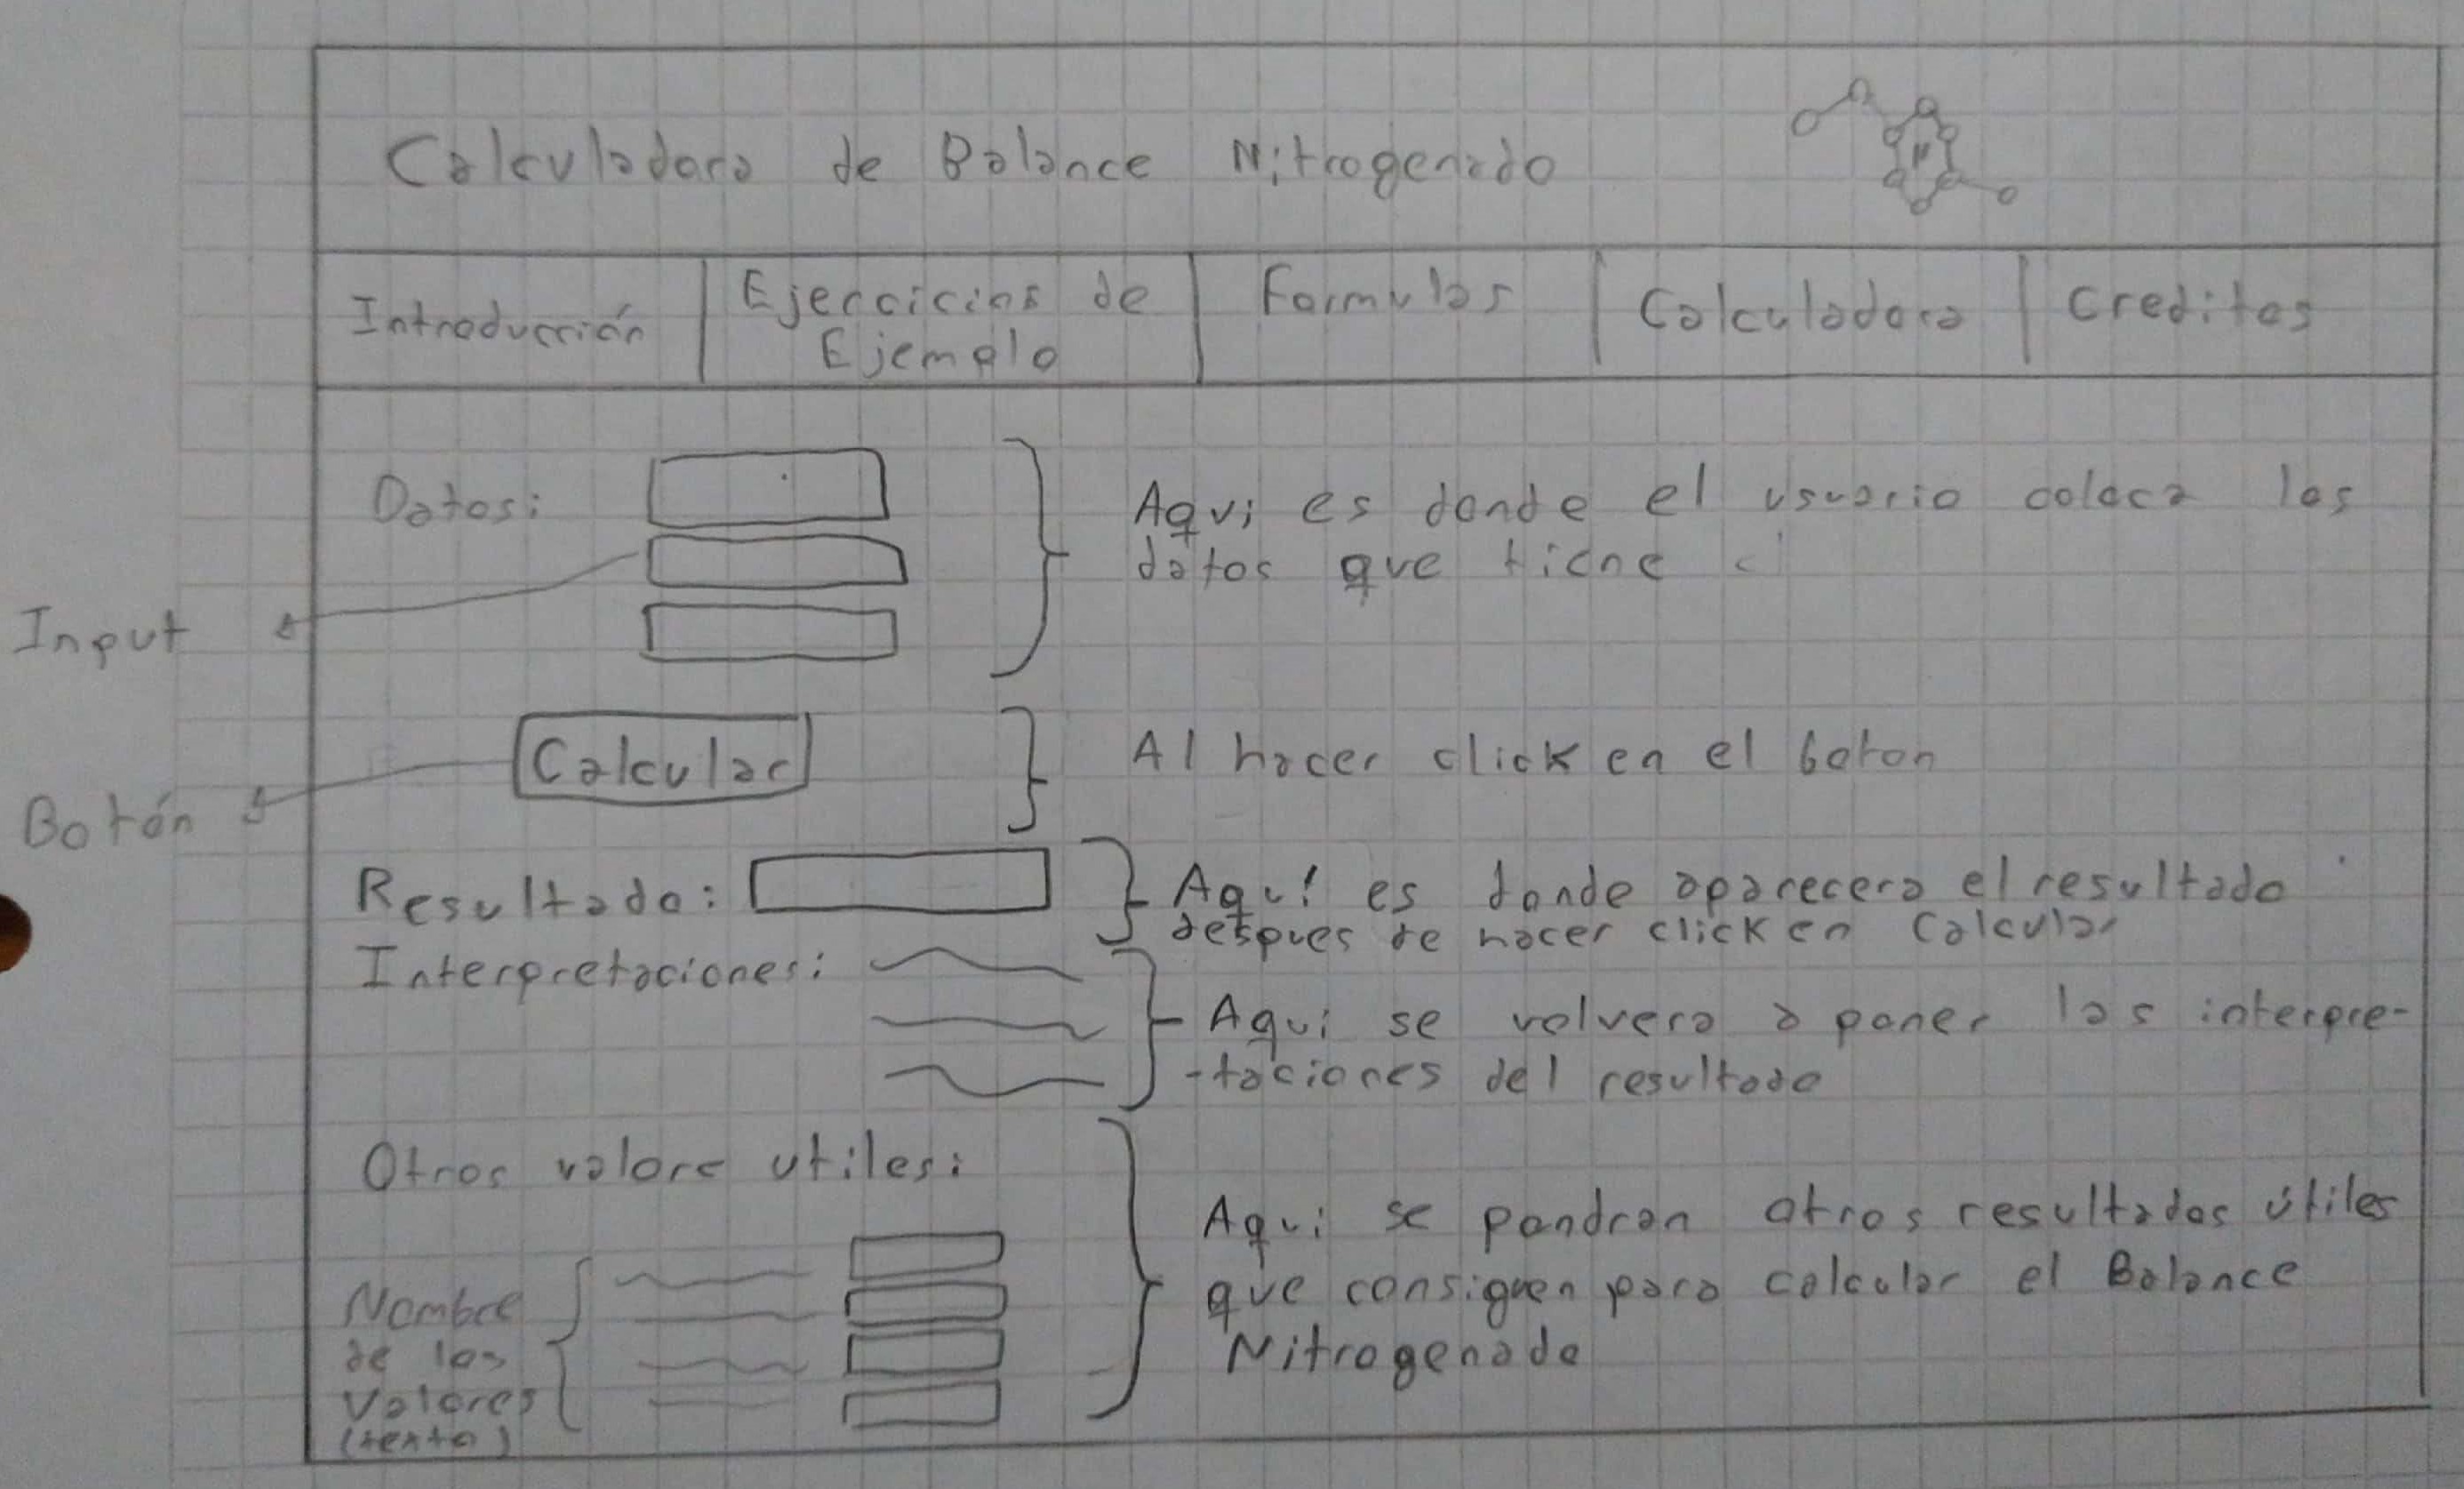 Calculadora de Balance Nitrogenado
Introducción
Ejercicios de
Ejemplo
Formulas
Calculadora
Creditos
Datos:
Aqui es donde el usuario coloca los
datos que tiene
Input
Calcular
Al hacer click en el boton
Botón
Resultado:
Aquí es donde aparecera el resultado
despues de hacer click en Calcular
Interpretaciones:
Aqui se volvera a poner las interpre-
-taciones del resultado
Otros valore utiles:
Aqui se pondran otros resultados útiles
que consiguen para calcular el Balance
Nitrogenado
Nombre
de los
Valores
(texto)